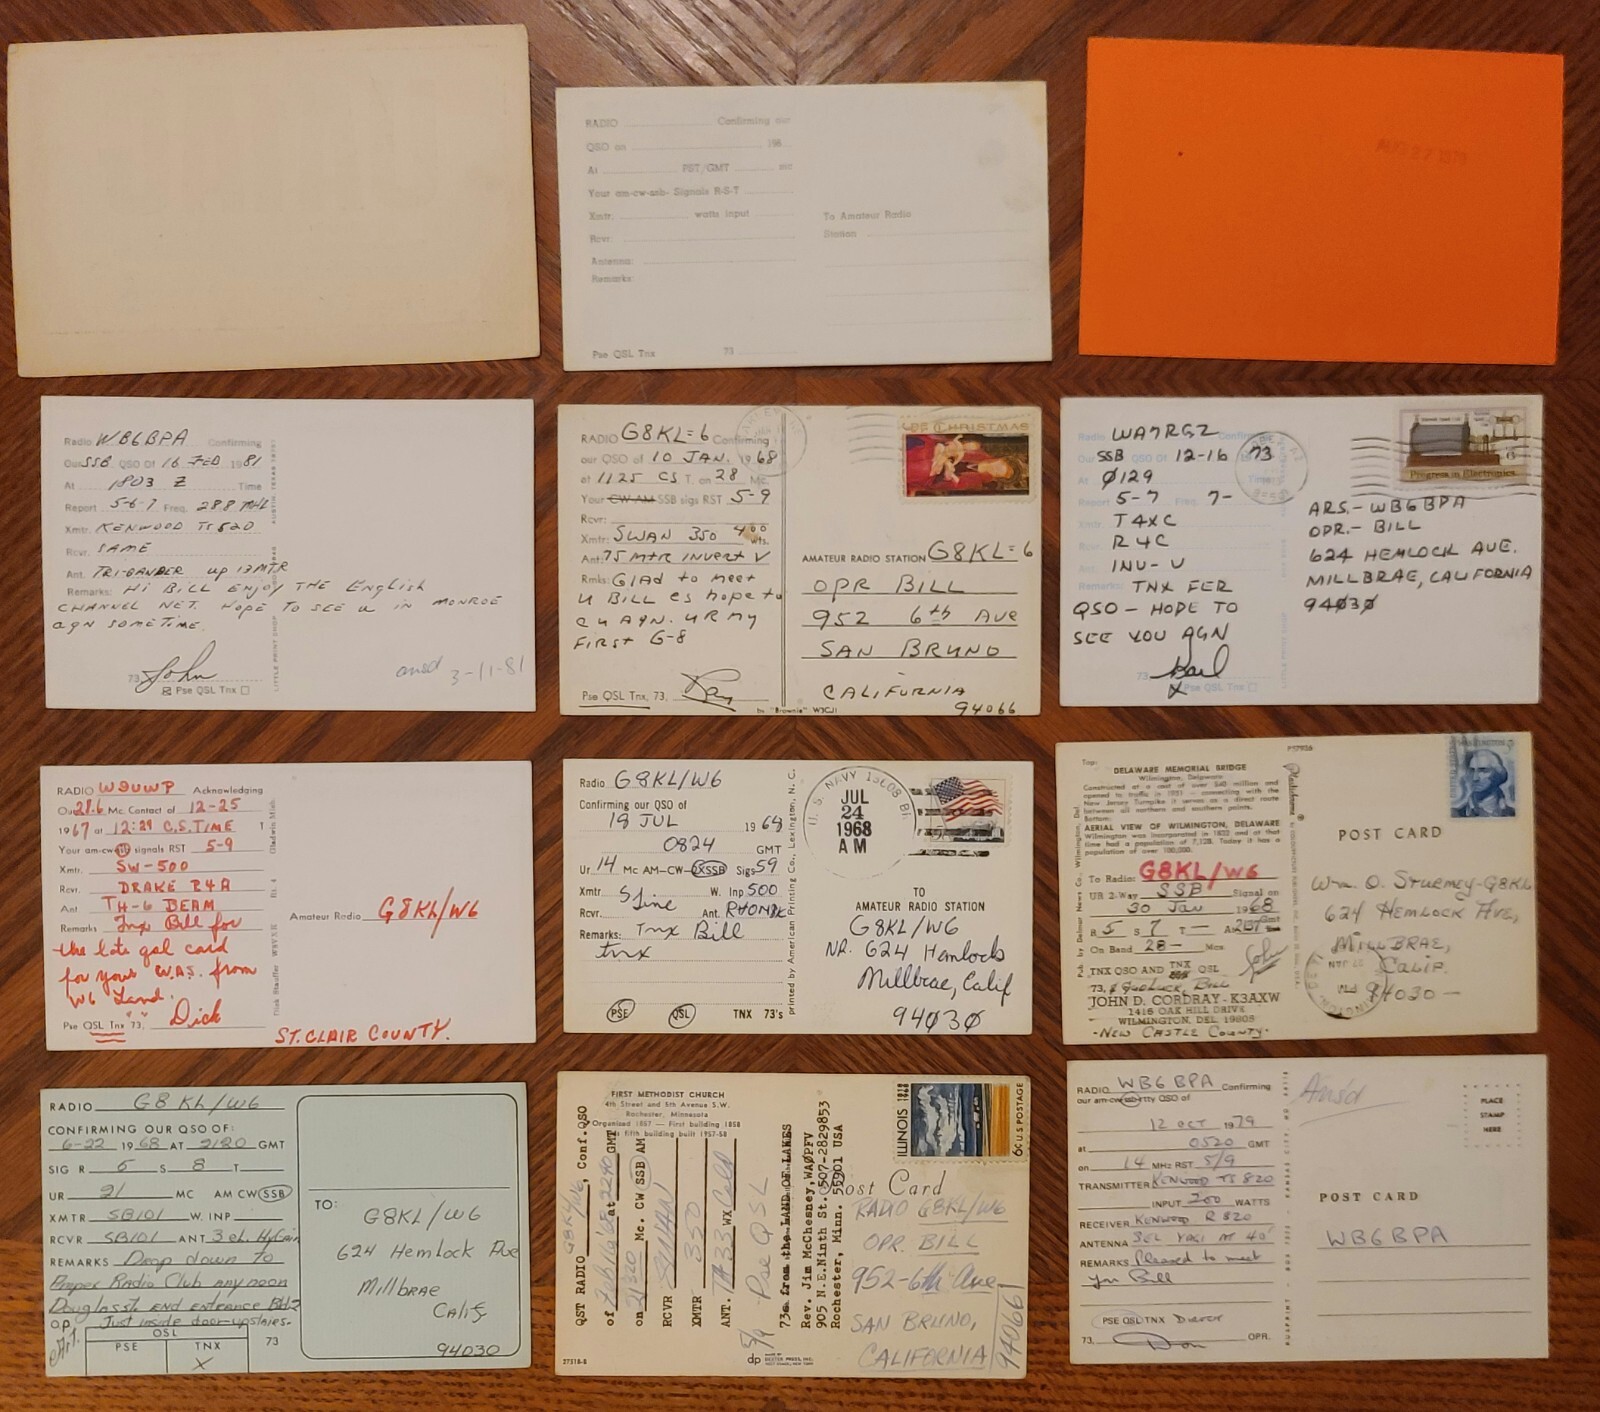 RADIO Confirming our
QSO on 196
At PST/GMT
Your am-cw-ssb- Signals R-S-T
Xmtr. watts input
Rcvr:
Antenna:
Remarks:
Pse QSL Tnx 73
To Amateur Radio
Station
AUG 27 1978
Radio WB6BPA Confirming
Our SSB QSO Of 16 FEB 1981
At 1803 Z Time
Report 5-6-7 Freq. 28.8 MHz
Xmtr. KENWOOD TS 520
Rcvr. SAME
Ant. TRI-BANDER up 13 MTR
Remarks: Hi BILL ENJOY THE ENGlish
CHANNEL NET. HOPE TO SEE U IN MONROE
agn SOMETIME.
73, John
Pse QSL Tnx
ansd 3-11-81
RADIO G8KL=6 Confirming
our QSO of 10 JAN. 1968
at 1125 CS T. on 28 Mc.
Your CW-AM SSB sigs RST 5-9
Rcvr:
Xmtr: SWAN 350 400 wts.
Ant: 75 MTR INVERT V
Rmks: GlAd to meet
u BILL es hope to
cu AgN. UR my
FIRST G-8
Pse QSL Tnx, 73, Ray
by "Brownie" W3CJI
CHRISTMAS
AMATEUR RADIO STATION G8KL=6
OPR BILL
952 6th Ave
SAN BRUNO
CALIFORNIA
94066
Radio WA7RGZ Confirming
Our SSB QSO Of 12-16 1973
At Ø129 Time
Report 5-7 Freq. 7-
Xmtr. T4XC
Rcvr. R4C
Ant. INV-V
Remarks: TNX FER
QSO - HOPE TO
SEE YOU AGN
73,
Pse QSL Tnx
Progress in Electronics
ARS.- WB6BPA
OPR.- BILL
624 HEMLOCK AVE.
MILLBRAE, CALIFORNIA
94Ø3Ø
RADIO W9UWP Acknowledging
Our 28.6 Mc. Contact of 12-25
1967 at 12:29 C.S.TIME
Your am-cw signals RST 5-9
Xmtr. SW-500
Rcvr. DRAKE R4A
Ant TH-6 BEAM
Remarks Tnx Bill for
the late qsl card
for your W.A.S. from
W6 Land.
Pse QSL Tnx 73, Dick
Amateur Radio G8KL/W6
ST. CLAIR COUNTY.
Radio G8KL/W6
Confirming our QSO of
19 JUL 1968
0824 GMT
Ur 14 Mc AM-CW-2XSSB Sigs 59
Xmtr S Line W. Inp 500
Rcvr. Ant. RHOMBIC
Remarks: Tnx Bill
tnx
PSE QSL TNX 73's
printed by American Printing Co., Lexington, N. C.
JUL
24
1968
AM
TO
AMATEUR RADIO STATION
G8KL/W6
NR. 624 Hemlock
Millbrae, Calif
94Ø3Ø
P57956
Top:
DELAWARE MEMORIAL BRIDGE
Wilmington, Delaware
Constructed at a cost of over $40 million and
opened to traffic in 1951 - connecting with the
New Jersey Turnpike it serves as a direct route
between all northern and southern points.
Bottom:
AERIAL VIEW OF WILMINGTON, DELAWARE
Wilmington was incorporated in 1832 and at that
time had a population of 7,128. Today it has a
population of over 100,000.
To Radio: G8KL/W6
UR 2-Way SSB Signal on
30 Jan 1968
R 5 S 7 T - At 2137 Gmt
On Band 28- Mcs.
TNX QSO AND TNX QSL
73, & Good Luck, Bill
JOHN D. CORDRAY - K3AXW
1416 OAK HILL DRIVE
WILMINGTON, DEL. 19805
-NEW CASTLE COUNTY-
John
POST CARD
Wm. O. Sturmey-G8KL
624 Hemlock Ave,
MILLBRAE,
CALIF.
94030-
RADIO G8 KL/W6
CONFIRMING OUR QSO OF:
6-22 1968 AT 2120 GMT
SIG R 5 S 8 T
UR 21 MC AM CW SSB
XMTR SB101 W. INP
RCVR SB101 ANT 3 el. HyGain
REMARKS Drop down to
Proper Radio Club any noon
Just inside door-upstairs-
OP. Art.
QSL
PSE TNX
X
73
TO:
G8KL/W6
624 Hemlock Ave
Millbrae
Calif
94030
FIRST METHODIST CHURCH
4th Street and 5th Avenue S.W.
Rochester, Minnesota
Organized 1857 - First building 1858
fifth building built 1957-58
QST RADIO G8KL/W6, Conf. QSO
of at 2240 GMT
on 21320 Mc. CW SSB AM
RCVR SWAN
XMTR 350
ANT. TA33 WX Cold
5/9 Pse QSL
73s from the LAND OF LAKES
Rev. Jim McChesney, WAØPFV
905 N.E. Ninth St. 507-2829853
Rochester, Minn. 55901 USA
27318-B
dp
ILLINOIS 1818 1968
6c U.S. POSTAGE
Post Card
RADIO G8KL/W6
OPR. BILL
952-6th Ave
SAN BRUNO,
CALIFORNIA
94066
RADIO WB6 BPA Confirming
our am-cw-ssb-rtty QSO of
12 OCT 1979
at 0520 GMT
on 14 MHz RST 5/9
TRANSMITTER KENWOOD TS 820
INPUT 200 WATTS
RECEIVER KENWOOD R 820
ANTENNA 5EL YAGI AT 40'
REMARKS Pleased to meet
yu Bill
PSE QSL TNX Direct
73, Don OPR.
Ansd
PLACE
STAMP
HERE
POST CARD
WB6BPA